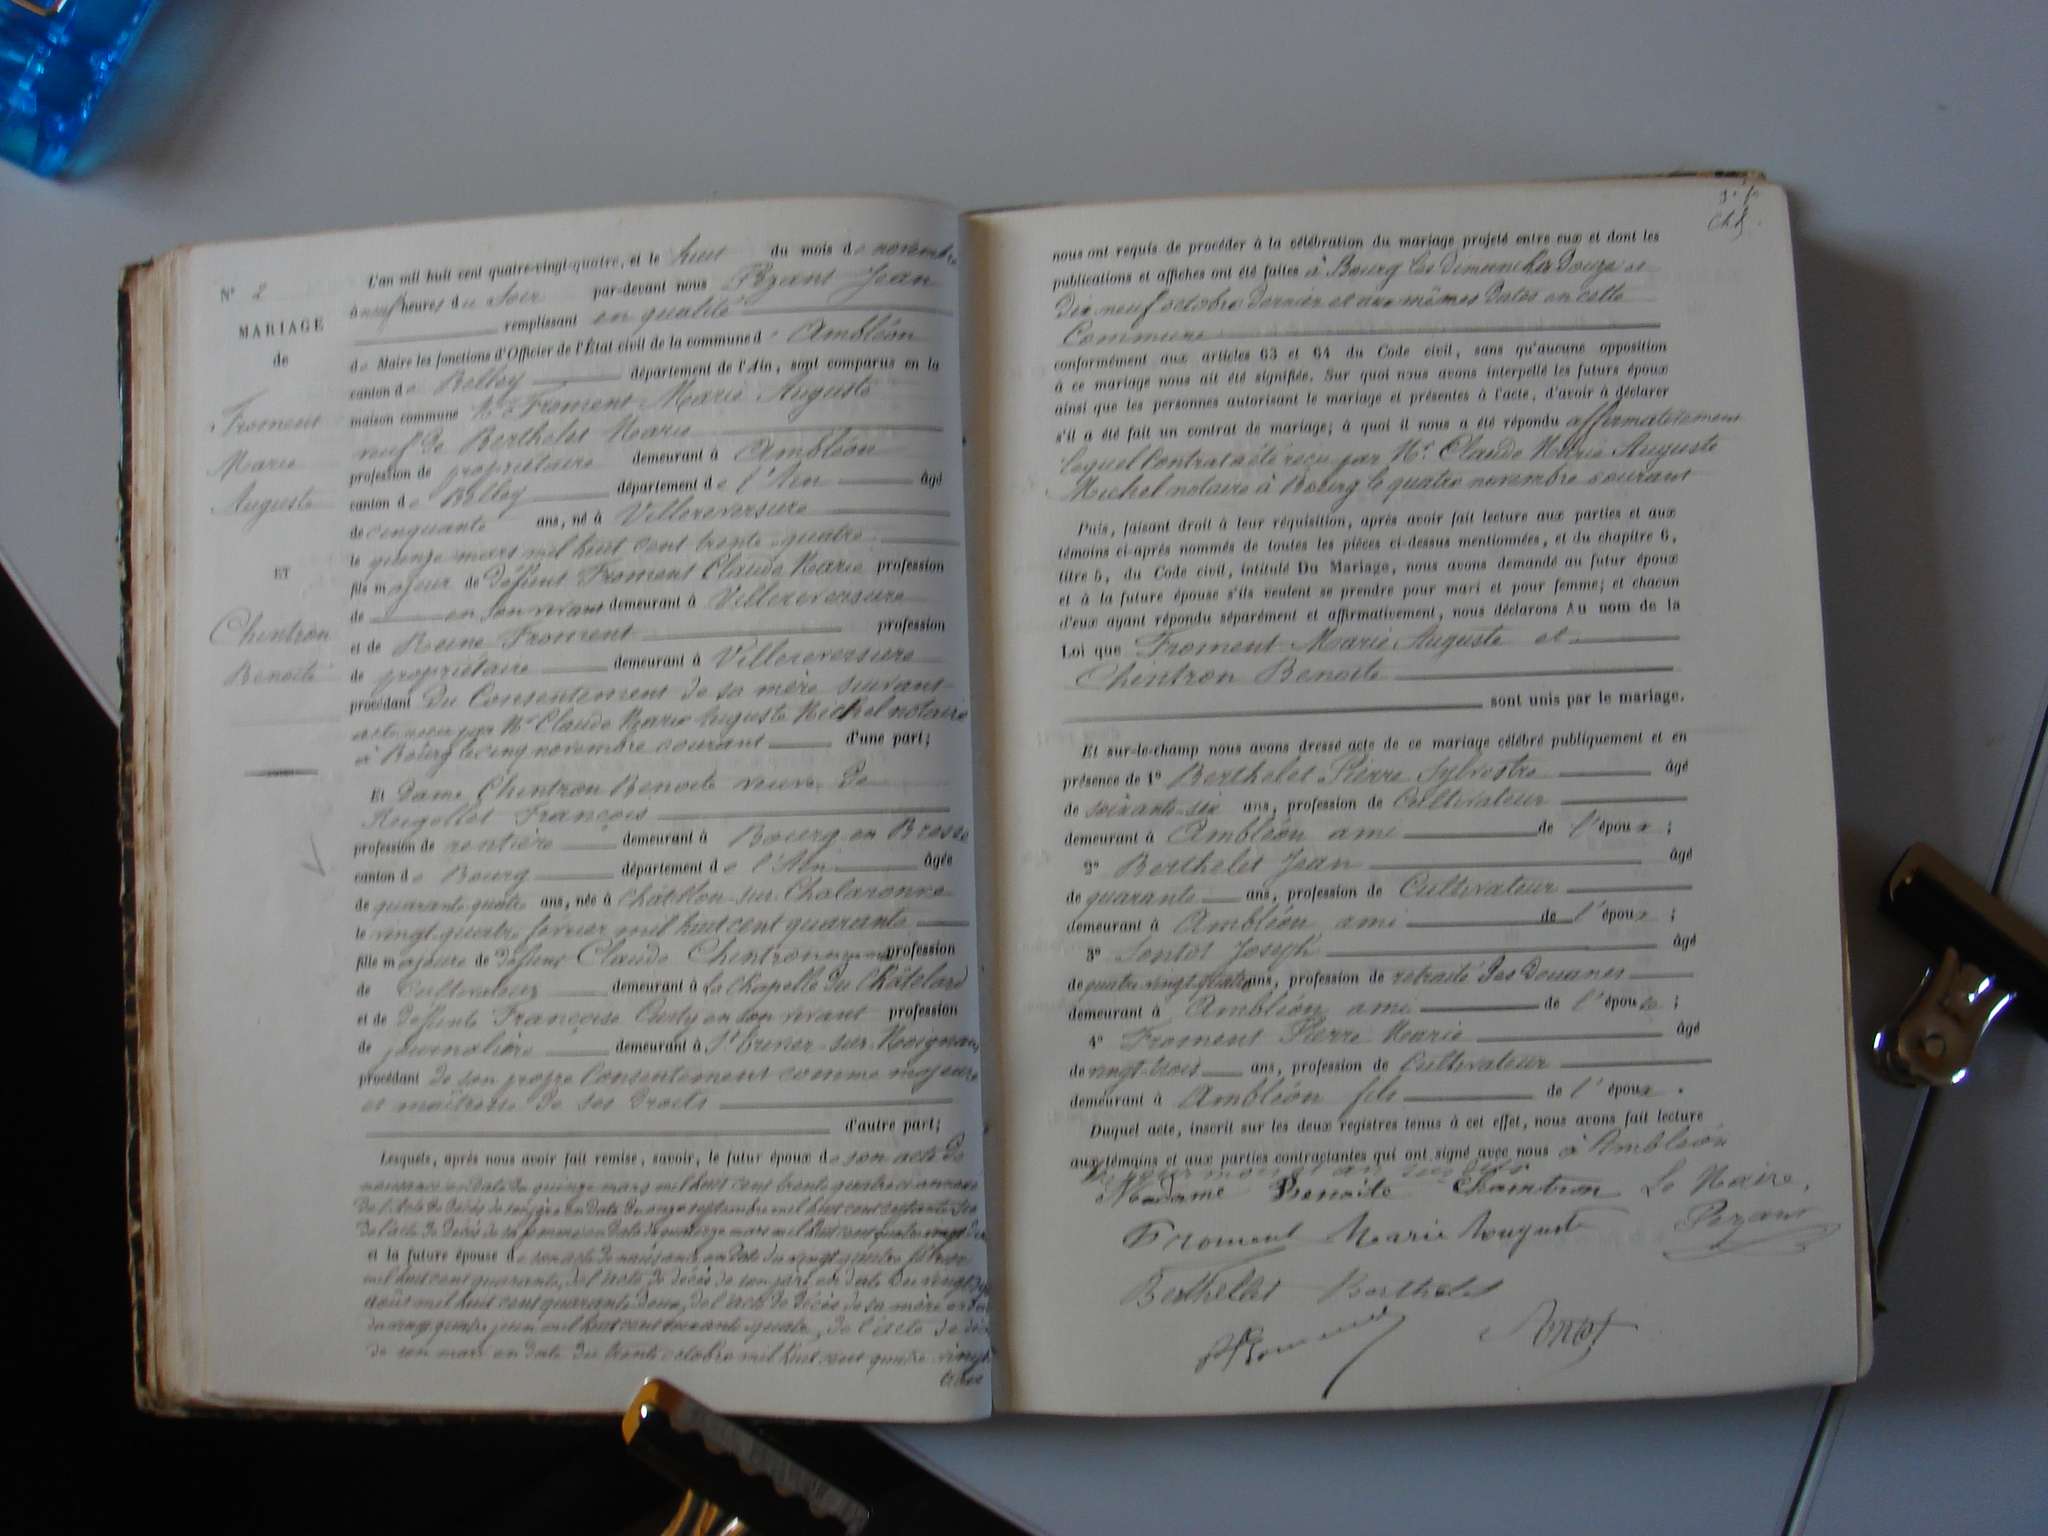 N° 2
MARIAGE
de
Froment
Marie
Auguste
ET
Chintron
Benoite
L'an mil huit cent quatre-vingt-quatre, et le huit du mois de novembre
à neuf heures du Soir par-devant nous Pezant Jean
remplissant en qualité
de Maire les fonctions d'Officier de l'État civil de la commune d' Ambléon
canton de Belley département de l'Ain, sont comparus en la
maison commune Mr Froment Marie Auguste
veuf de Berthelet Marie
profession de propriétaire demeurant à Ambléon
canton de Belley département de l'Ain âgé
de cinquante ans, né à Villereversure
le quinze mars mil huit cent trente-quatre
fils majeur de défunt Froment Claude Marie profession
de en son vivant demeurant à Villereversure
et de Reine Froment profession
de propriétaire demeurant à Villereversure
procédant du Consentement de sa mère suivant
acte reçu par Me Claude Marie Auguste Michel notaire
à Bourg le cinq novembre courant d'une part;
Et Dame Chintron Benoite veuve de
François
profession de rentière demeurant à Bourg en Bresse
canton de Bourg département de l'Ain âgée
de quarante quatre ans, née à Châtillon-sur-Chalaronne
le vingt quatre février mil huit cent quarante
fille majeure de défunt Claude Chintron profession
de Cultivateur demeurant à La Chapelle du Châtelard
et de défunte Françoise en son vivant profession
de journalière demeurant à St
procédant de son propre Consentement comme majeure
et maîtresse de ses droits
d'autre part;
Lesquels, après nous avoir fait remise, savoir, le futur époux de son acte de
naissance en date du quinze mars mil huit cent trente quatre
de l'acte de décès de son père en date du onze septembre mil huit cent
de l'acte de décès de sa femme en date du mars mil huit cent quatre vingt
et la future épouse de son acte de naissance en date du vingt quatre février
mil huit cent quarante, de l'acte de décès de son père en date du vingt
août mil huit cent quarante deux, de l'acte de décès de sa mère en date
du vingt quatre juin mil huit cent quatre, de l'acte de décès
de son mari en date du trente octobre mil huit cent quatre vingt
nous ont requis de procéder à la célébration du mariage projeté entre eux et dont les
publications et affiches ont été faites à Bourg les dimanches douze et
dix neuf octobre dernier et aux mêmes dates en cette
Commune
conformément aux articles 63 et 64 du Code civil, sans qu'aucune opposition
à ce mariage nous ait été signifiée. Sur quoi nous avons interpellé les futurs époux
ainsi que les personnes autorisant le mariage et présentes à l'acte, d'avoir à déclarer
s'il a été fait un contrat de mariage; à quoi il nous a été répondu affirmativement
lequel Contrat a été reçu par Me Claude Marie Auguste
Michel notaire à Bourg le quatre novembre courant
Puis, faisant droit à leur réquisition, après avoir fait lecture aux parties et aux
témoins ci-après nommés de toutes les pièces ci-dessus mentionnées, et du chapitre 6,
titre 5, du Code civil, intitulé Du Mariage, nous avons demandé au futur époux
et à la future épouse s'ils veulent se prendre pour mari et pour femme; et chacun
d'eux ayant répondu séparément et affirmativement, nous déclarons Au nom de la
Loi que Froment Marie Auguste et
Chintron Benoite
sont unis par le mariage.
Et sur-le-champ nous avons dressé acte de ce mariage célébré publiquement et en
présence de 1° Berthelet Pierre Sylvestre âgé
de soixante-six ans, profession de Cultivateur
demeurant à Ambléon ami de l'époux;
2° Berthelet Jean âgé
de quarante ans, profession de Cultivateur
demeurant à Ambléon ami de l'époux;
3° Sontot Joseph âgé
de quatre vingt quatre ans, profession de retraité des Douanes
demeurant à Ambléon ami de l'épouse;
4° Froment Pierre Marie âgé
de vingt-trois ans, profession de Cultivateur
demeurant à Ambléon fils de l'époux.
Duquel acte, inscrit sur les deux registres tenus à cet effet, nous avons fait lecture
aux témoins et aux parties contractantes qui ont signé avec nous à Ambléon
les jour mois et an
Madame Benoite Chamtron Le Maire,
Froment Marie August Pezant
Berthelet Berthelet